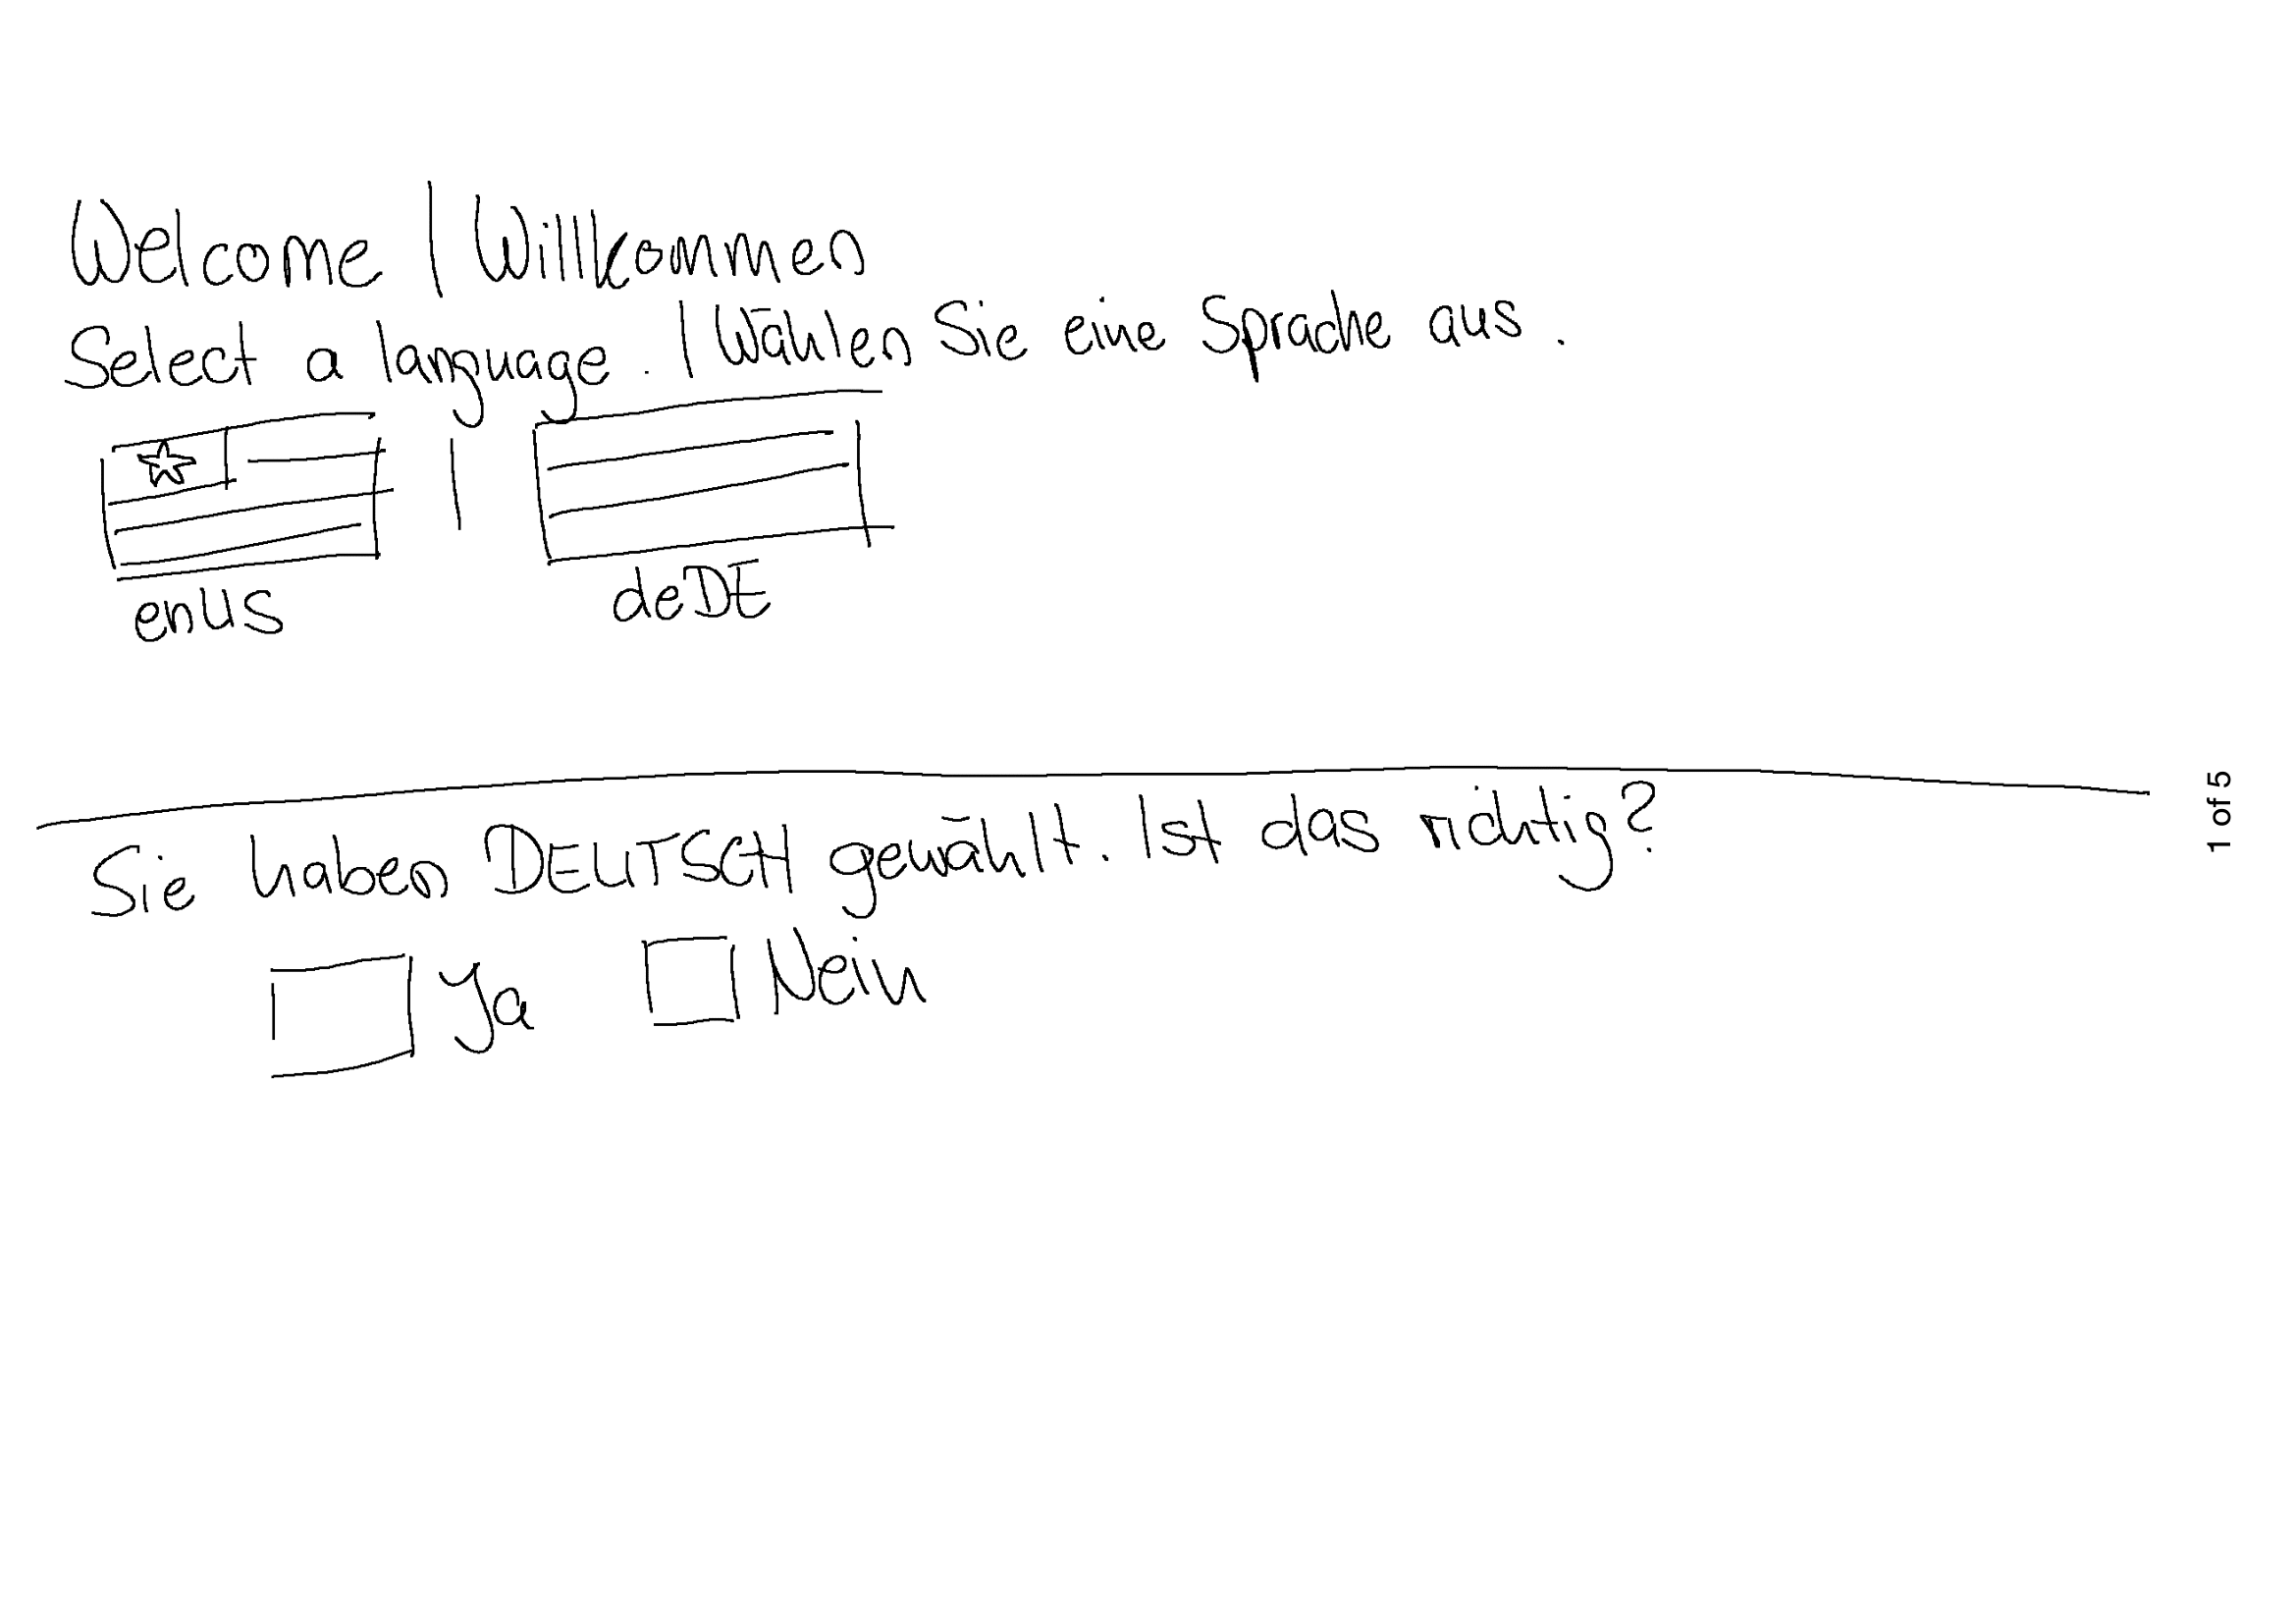 Welcome | Willkommen
Select a language. | Wählen Sie eine Sprache aus.
enUS | deDE
Sie haben DEUTSCH gewählt. Ist das richtig?
Ja Nein
1 of 5